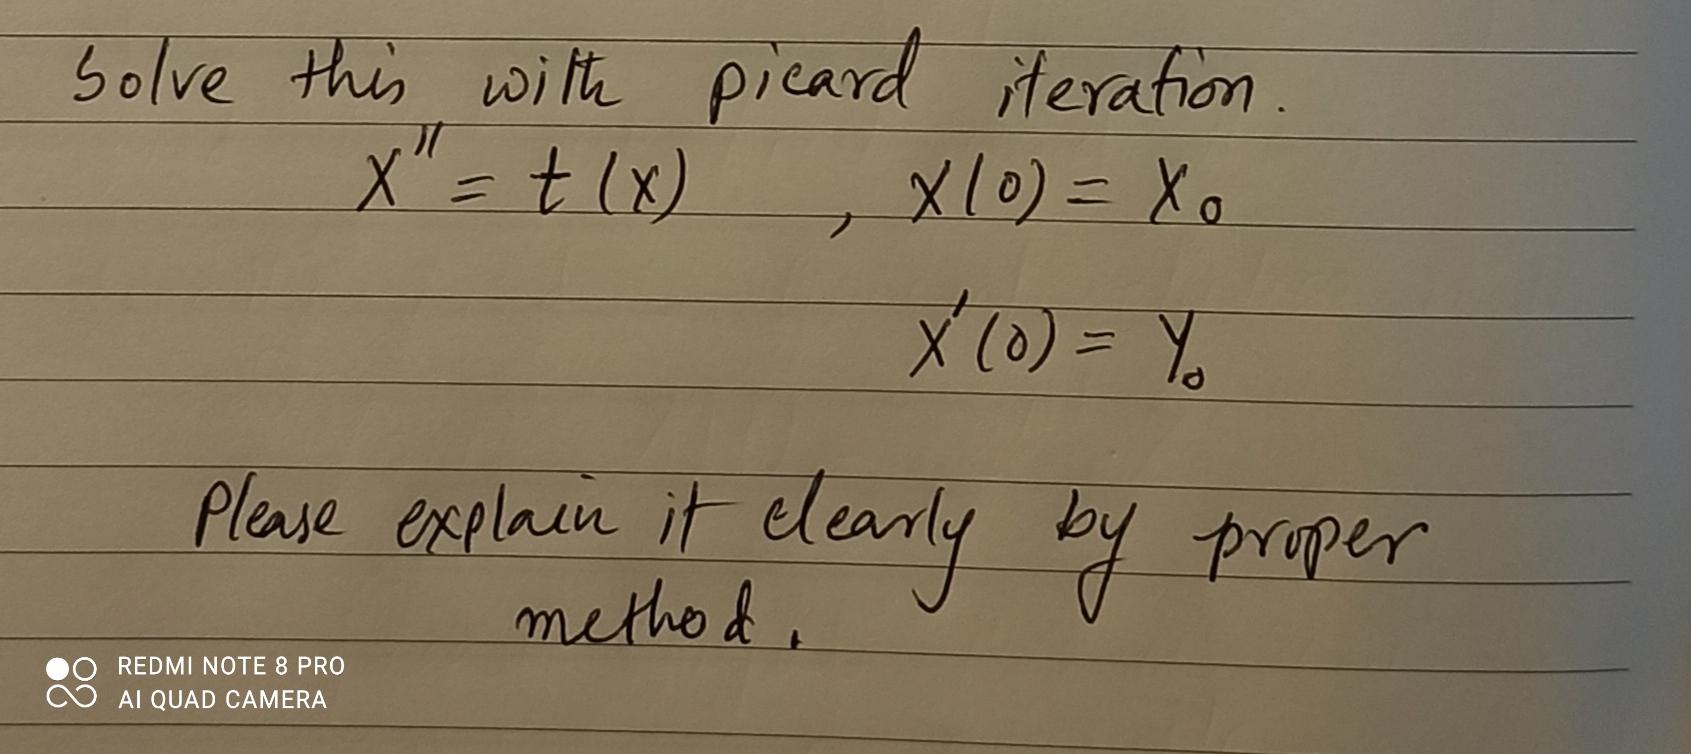 Solve this with picard iteration.
X'' = t(x) , X(0) = X₀
X'(0) = Y₀
Please explain it clearly by proper
method.
REDMI NOTE 8 PRO
AI QUAD CAMERA